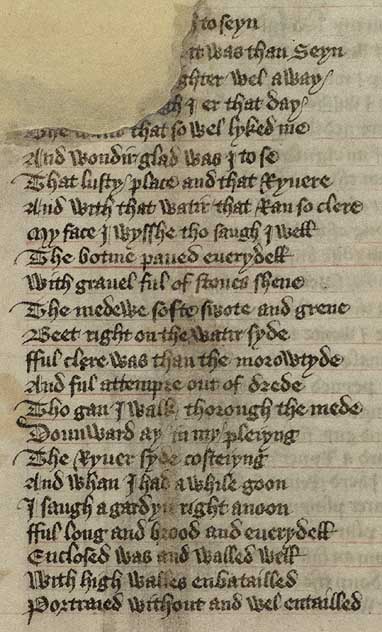 I to seyn
it was than Seyn
ghter wel away
gh I er that day
The watir that so wel lyked me
And wondir glad was I to se
That lusty place and that Ryvere
And with that watir that Ran so clere
My face I wysshe tho saugh I well
The botme paved everydell
With gravel ful of stones shene
The medewe softe swote and grene
Beet right on the watir syde
fful clere was than the morowtyde
And ful attempre out of drede
Tho gan I walk thorough the mede
Dounward ay in my pleiyng
The Ryver syde costeiyng
And whan I had a while goon
I saugh a gardyn right anoon
fful long and brood and everydell
Enclosed was and walled well
With high walles enbatailled
Portraied without and wel entailled